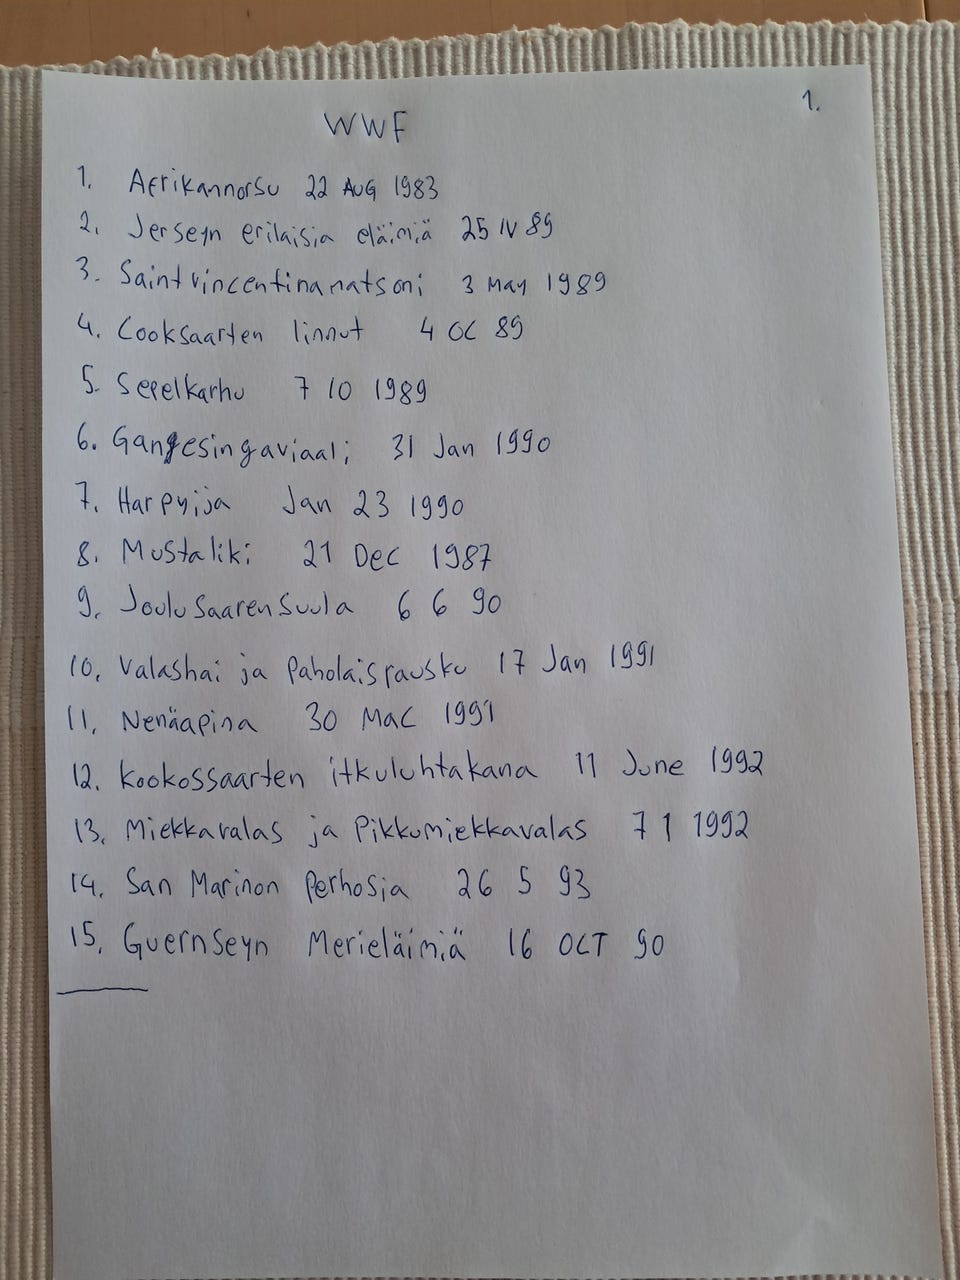 1.
WWF
1. Afrikannorsu 22 AUG 1983
2. Jerseyn erilaisia eläimiä 25 IV 89
3. Saintvincentinamatsoni 3 May 1989
4. Cooksaarten linnut 4 OC 89
5. Sepelkarhu 7 10 1989
6. Gangesingaviaali 31 Jan 1990
7. Harpyija Jan 23 1990
8. Mustaliki 21 Dec 1987
9. Joulusaarensuula 6 6 90
10. Valashai ja Paholaisrausku 17 Jan 1991
11. Nenäapina 30 Mac 1991
12. Kookossaarten itkuluhtakana 11 June 1992
13. Miekkavalas ja Pikkumiekkavalas 7 1 1992
14. San Marinon Perhosia 26 5 93
15. Guernseyn Merieläimiä 16 OCT 90